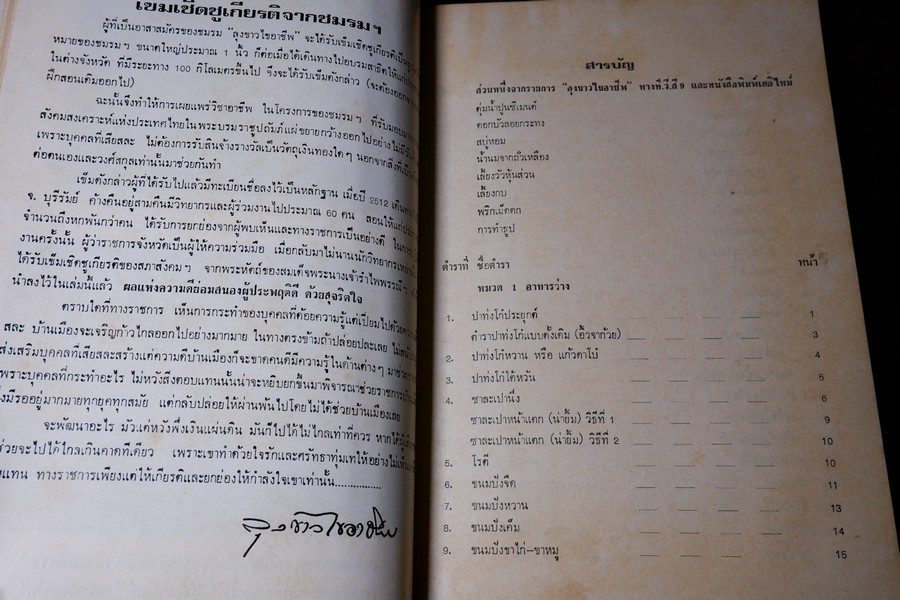 เข็มเชิดชูเกียรติจากชมรมฯ
ผู้ที่เป็นอาสาสมัครของชมรม "ลุงขาวไขอาชีพ" จะได้รับเข็มเชิดชูเกียรติเป็น
หมายของชมรมฯ ขนาดใหญ่ประมาณ 1 นิ้ว ก็ต่อเมื่อได้เดินทางไปอบรมสาธิตให้แก่
ในต่างจังหวัด ที่มีระยะทาง 100 กิโลเมตรขึ้นไป จึงจะได้รับเข็มดังกล่าว (จะต้องออก
ฝึกสอนเดิมออกไป)
ฉะนั้นจึงทำให้การเผยแพร่วิชาอาชีพ ในโครงการของชมรมฯ ที่รับมอบ
สังคมสงเคราะห์แห่งประเทศไทยในพระบรมราชูปถัมภ์แผ่ขยายกว้างออกไปอย่างไม่
เพราะบุคคลที่เสียสละ ไม่ต้องการรับสินจ้างรางวัลเป็นวัตถุเงินทองใดๆ นอกจากสิ่งที่เป็น
ต่อตนเองและวงศ์สกุลเท่านั้นมาช่วยกันทำ
เข็มดังกล่าวผู้ที่ได้รับไปแล้วมีทะเบียนชื่อลงไว้เป็นหลักฐาน เมื่อปี 2512 เดินทาง
จ. บุรีรัมย์ ค้างคืนอยู่สามคืนมีวิทยากรและผู้ร่วมงานไปประมาณ 60 คน สอนให้แก่
จำนวนถึงหกพันกว่าคน ได้รับการยกย่องจากผู้พบเห็นและทางราชการเป็นอย่างดี ในการ
งานครั้งนั้น ผู้ว่าราชการจังหวัดเป็นผู้ให้ความร่วมมือ เมื่อกลับมาไม่นานนักวิทยากร
ได้รับเข็มเชิดชูเกียรติของสภาสังคมฯ จากพระหัตถ์ของสมเด็จพระนางเจ้ารำไพพรรณีฯ
นำลงไว้ในเล่มนี้แล้ว ผลแห่งความดีย่อมสนองผู้ประพฤติดี ด้วยสุจริตใจ
ตราบใดที่ทางราชการ เห็นการกระทำของบุคคลที่ด้อยความรู้แต่เปี่ยมไปด้วยความ
สละ บ้านเมืองจะเจริญก้าวไกลออกไปอย่างมากมาย ในทางตรงข้ามถ้าปล่อยปละเลย ไม่
ส่งเสริมบุคคลที่เสียสละสร้างแต่ความดีบ้านเมืองก็จะขาดคนดีมีความรู้ในด้านต่างๆ มาช่วย
เพราะบุคคลที่กระทำอะไร ไม่หวังสิ่งตอบแทนนั้นน่าจะหยิบยกขึ้นมาพิจารณาช่วยราชการ
มีรออยู่มากมายทุกยุคทุกสมัย แต่กลับปล่อยให้ผ่านพ้นไปโดยไม่ได้ช่วยบ้านเมืองเลย
จะพัฒนาอะไร มัวแต่หวังพึ่งเงินแผ่นดิน มันก็ไปได้ไม่ไกลเท่าที่ควร หากได้
ช่วยจะไปได้ไกลเกินคาดทีเดียว เพราะเขาทำด้วยใจรักและศรัทธาทุ่มเทให้อย่างไม่
แทน ทางราชการเพียงแต่ให้เกียรติและยกย่องให้กำลังใจเขาเท่านั้น................
ลุงขาวไขอาชีพ
สารบัญ
ส่วนหนึ่งจากรายการ "ลุงขาวไขอาชีพ" ทางที.วี.สี 9 และหนังสือพิมพ์เดลินิวส์
ตุ่มน้ำปูนซีเมนต์
ดอกบัวลอยกระทง
สบู่หอม
น้ำนมจากถั่วเหลือง
เลี้ยงวัวหุ้นส่วน
เลี้ยงกบ
พริกเม็ดตก
การทำธูป
ตำราที่ ชื่อตำรา หน้า
หมวด 1 อาหารว่าง
1. ปาท่งโก๋ประยุกต์ 1
ตำราปาท่งโก๋แบบดั้งเดิม (อิ้วจาก้วย) 3
2. ปาท่งโก๋หวาน หรือ แก้วตาโบ๋ 4
3. ปาท่งโก๋ไต้หวัน 5
4. ซาละเปานึ่ง 6
ซาละเปาหน้าแตก (น่ายิ้ม) วิธีที่ 1 9
ซาละเปาหน้าแตก (น่ายิ้ม) วิธีที่ 2 10
5. โรตี 10
6. ขนมปังจืด 11
7. ขนมปังหวาน 13
8. ขนมปังเค็ม 14
9. ขนมปังขาไก่-ขาหมู 15